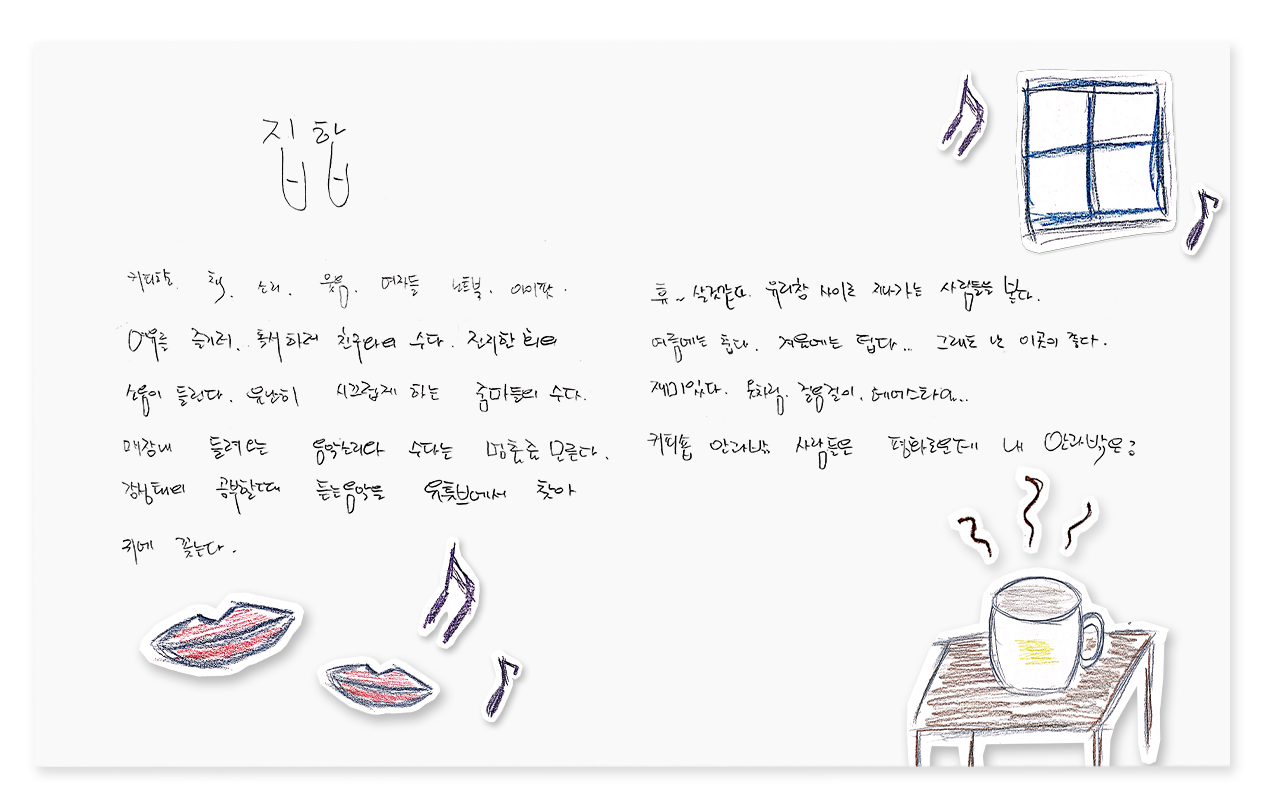 집합
커피향. 책. 소리. 웃음. 여자들 노트북. 아이팟.
여유를 즐기러. 독서하러 친구와의 수다. 진지한 회의
소음이 들린다. 유난히 시끄럽게 하는 줌마들의 수다.
매장내 들려오는 음악소리와 수다는 멈출줄 모른다.
공부할때 듣는음악을 유튜브에서 찾아
귀에 꽂는다.
휴~ 살것같다. 유리창 사이로 지나가는 사람들을 본다.
여름에는 춥다. 겨울에는 덥다.. 그래도 난 이곳이 좋다.
재미있다. 옷차림. 걸음걸이. 헤어스타일..
커피숍 안과밖 사람들은 평화로운데 내 안과밖은?